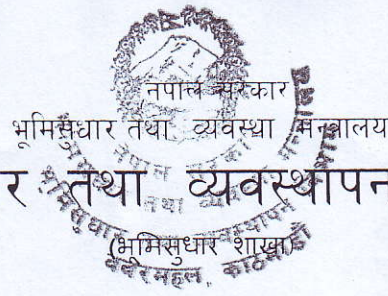 नेपाल सरकार
भूमिसुधार तथा व्यवस्था मन्त्रालय
र तथा व्यवस्थापन
(भूमिसुधार शाखा)
नेपाल सरकार
बबरमहल, काठमाडौं